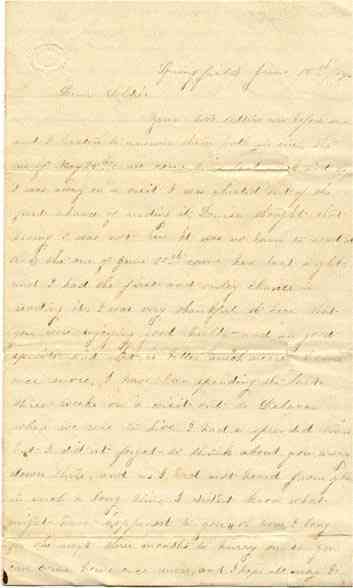 Springfield June 18th
Dear Soldier
Your two letters are before me
and I hasten to answer them both in one. The
one of May 29th came
I was away on a visit I was cheated out of the
great chance of reading it. Louisa thought that
seeing I was not here it was no harm to read it
one of June 10th came here last night
and I had the first and only chance in
reading it. I was very thankful to hear that
you were enjoying good health and in good
spirits and
once more. I have been spending the last
three weeks on a visit out to Delavan
where we used to live I had a splendid time
but I did not forget to think about you away
down there, and as I had not heard from you
in such a long time I didn't know what
might have happened to you
for the next three months to hurry on so you
can come home once more, and I hope all may be